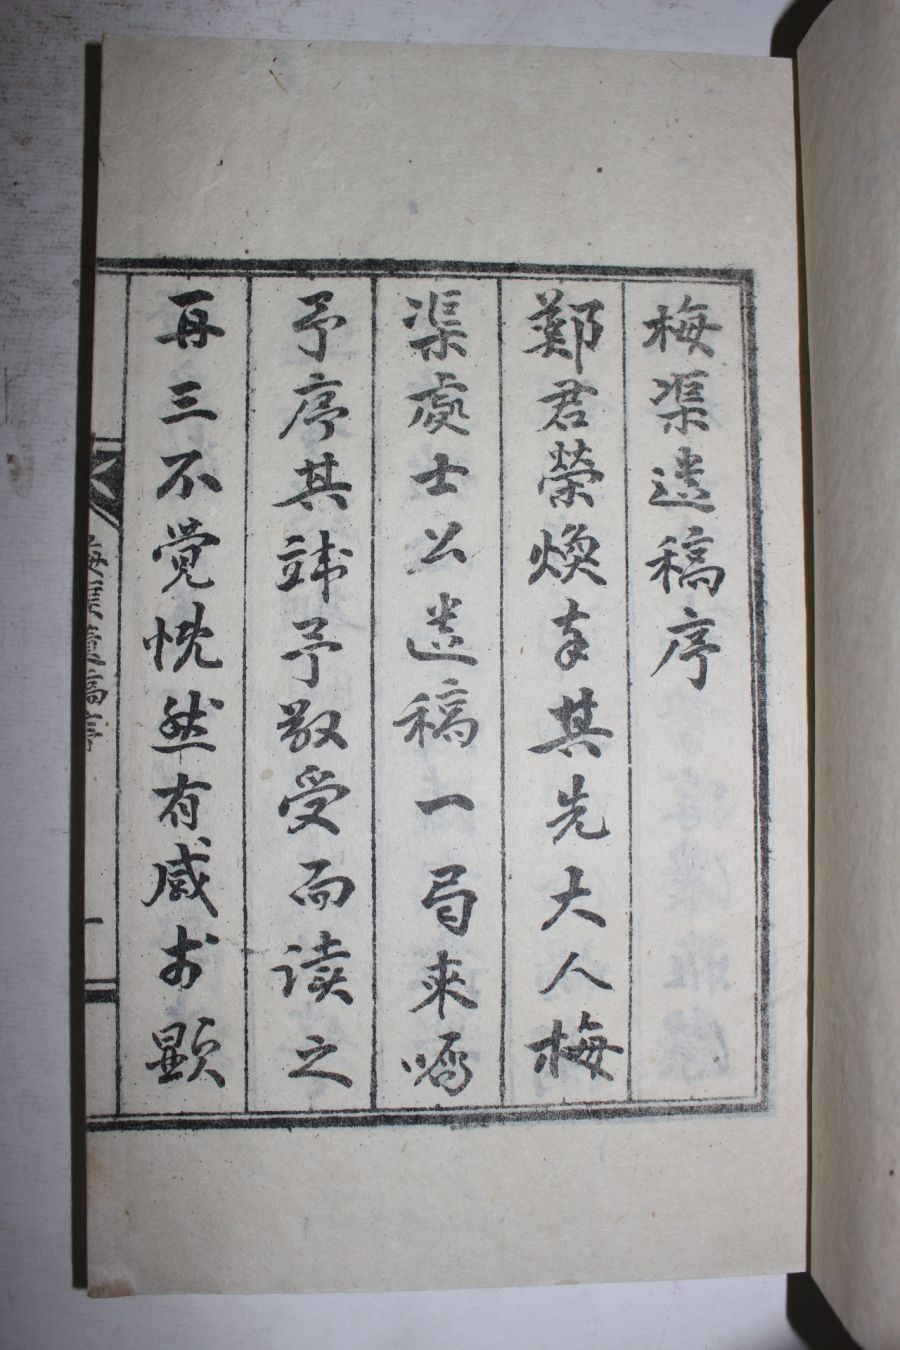 梅渠遺稿序
鄭君榮煥奉其先大人梅
渠處士公遺稿一局来嘱
予序其端予敬受而读之
再三不觉怳然有感於顕
梅渠遺稿序
一